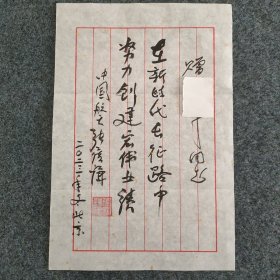 赠 同志
在新时代长征路中
努力创建宏伟业绩
中国航天张履谦
北京